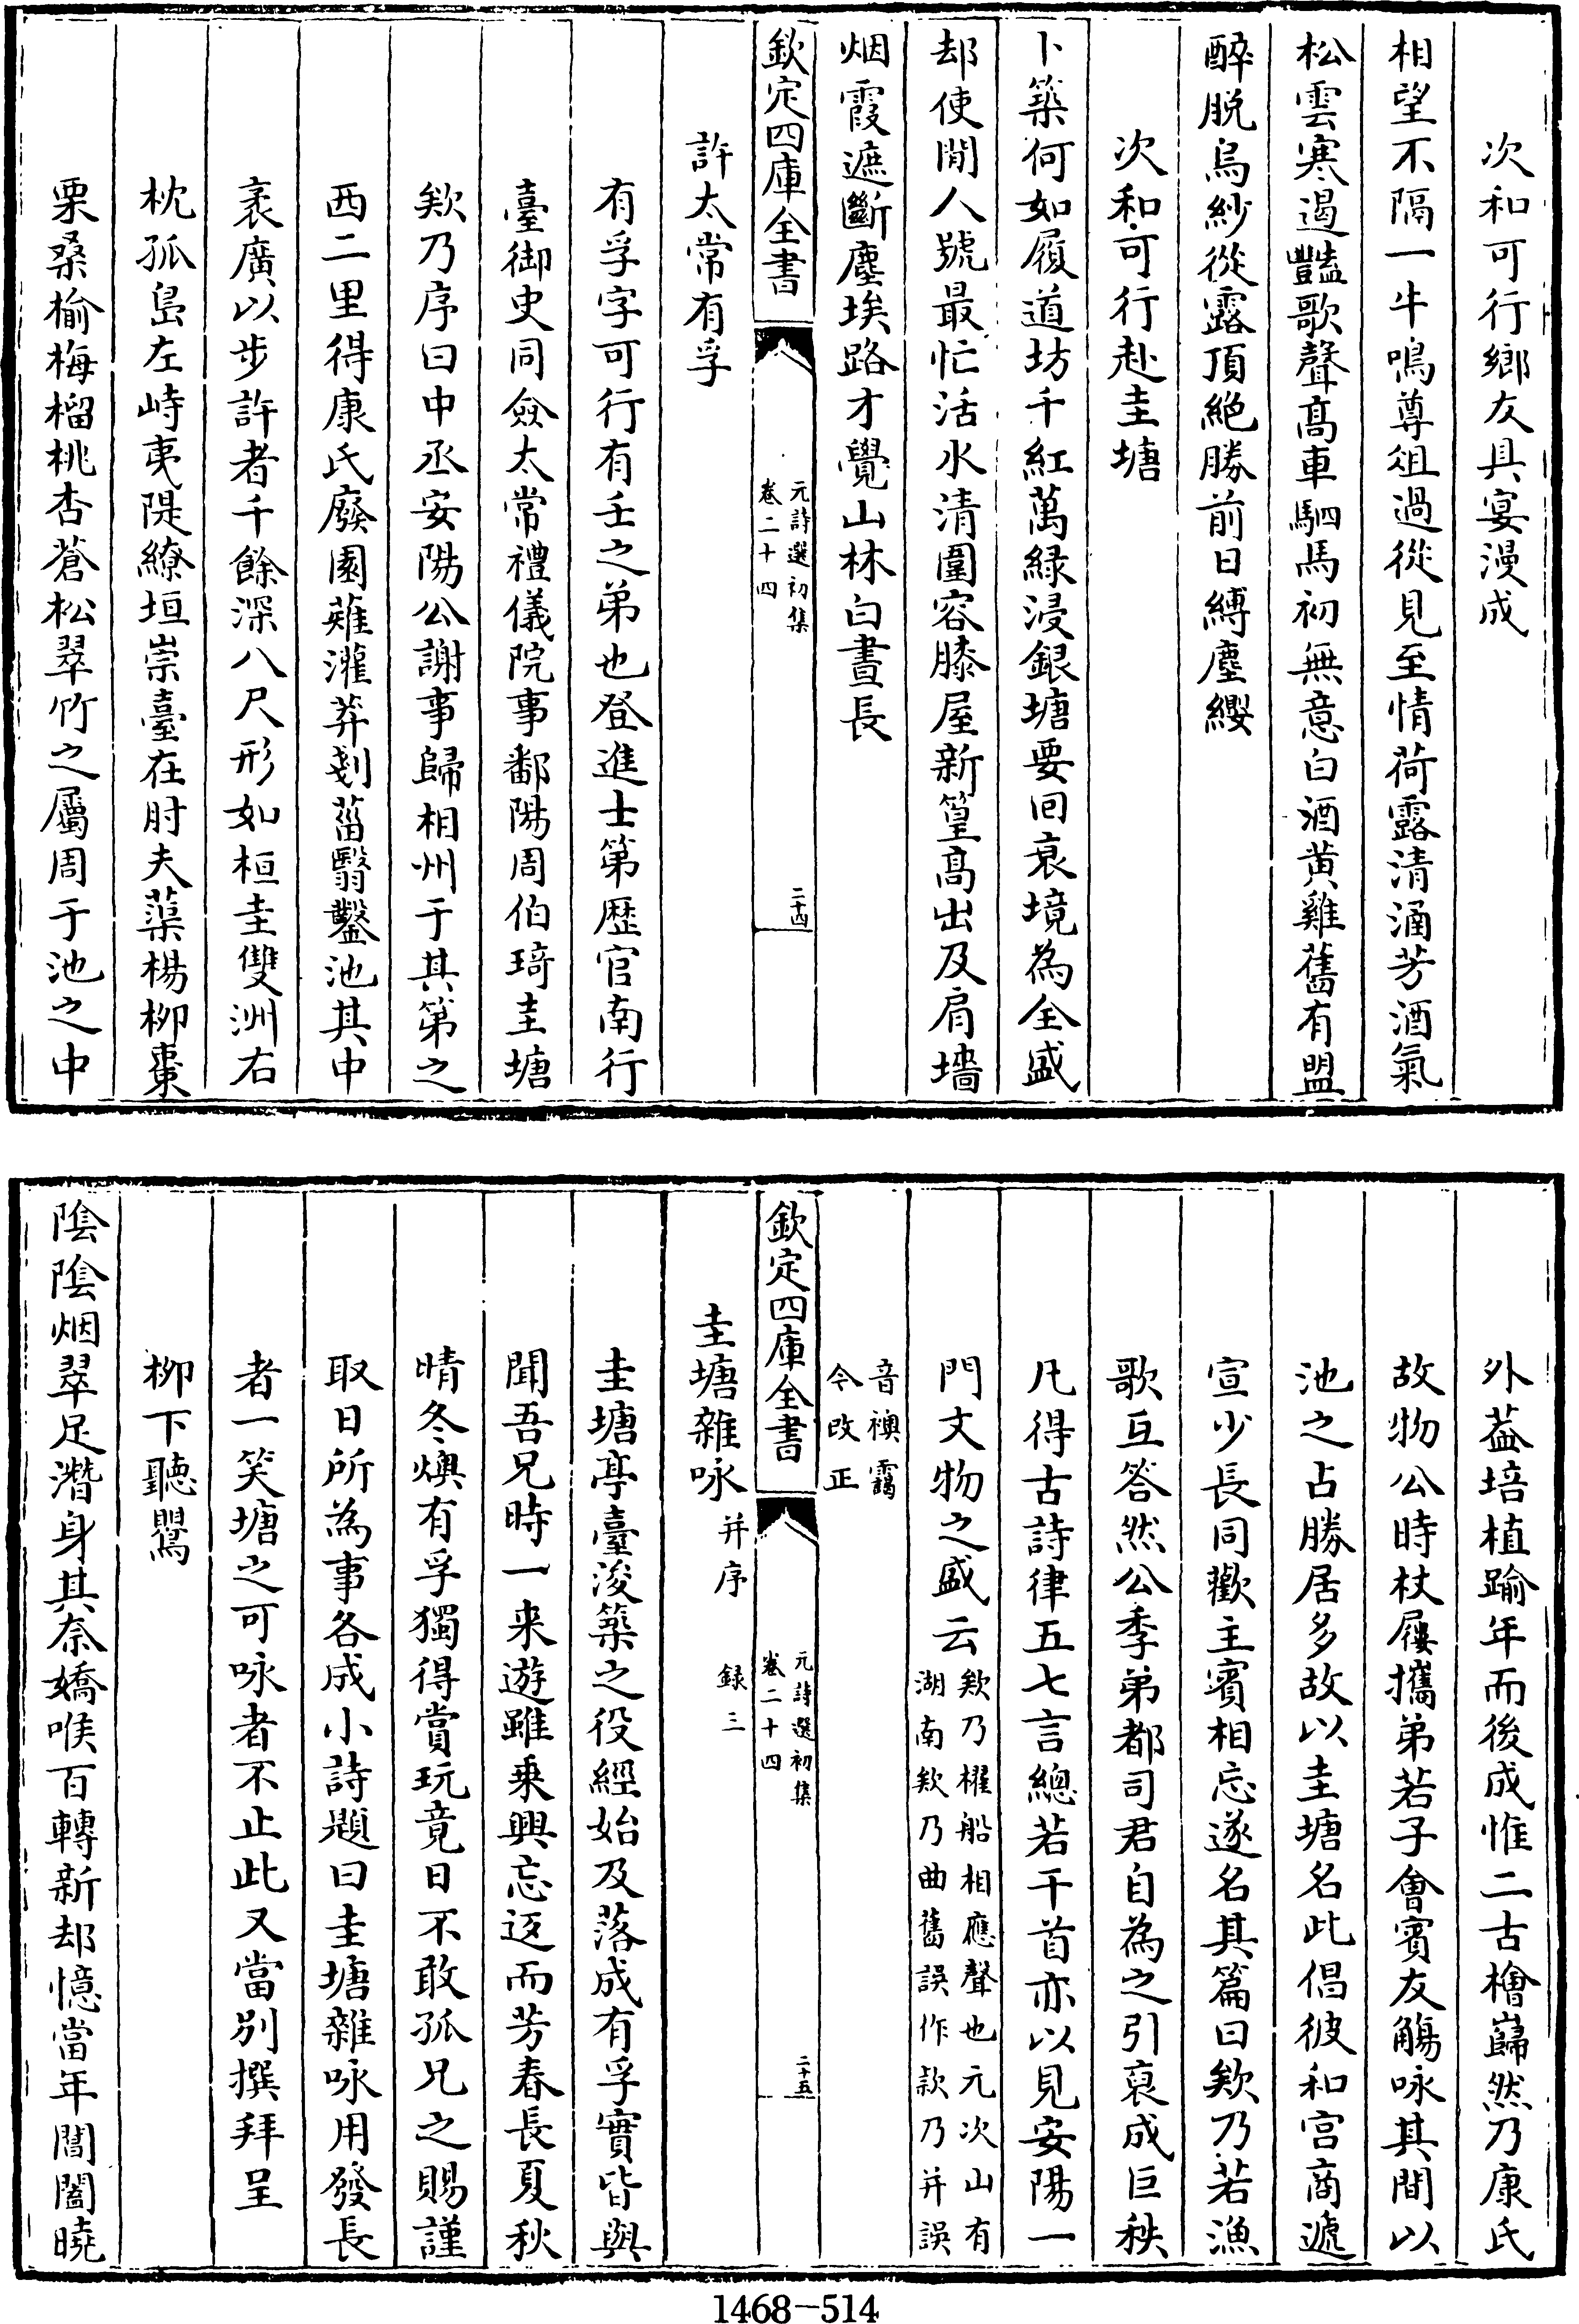 次和可行鄉友具宴漫成
相望不隔一牛鳴尊俎過從見至情荷露清涵芳酒氣
松雲寒遏豔歌聲髙車駟馬初無意白酒黄雞舊有盟
醉脱烏紗從露頂絶勝前日縛塵纓
次和可行赴圭塘
卜築何如履道坊千紅萬緑浸銀塘要回衰境為全盛
却使閒人號最忙活水清圍容膝屋新篁髙出及肩墻
烟霞遮斷塵埃路才覺山林白晝長
欽定四庫全書
元詩選初集
卷二十四
二十四
許太常有孚
有孚字可行有壬之弟也登進士第歴官南行
臺御史同僉太常禮儀院事鄱陽周伯琦圭塘
欸乃序曰中丞安陽公謝事歸相州于其第之
西二里得康氏廢園薙灌莽剗菑翳鑿池其中
袤廣以步許者千餘深八尺形如桓圭雙洲右
枕孤島左峙夷隄繚垣崇臺在肘夫蕖楊柳棗
栗桑榆梅榴桃杏蒼松翠竹之屬周于池之中
外葢培植踰年而後成惟二古檜巋然乃康氏
故物公時杖屨攜弟若子會賓友觴咏其間以
池之占勝居多故以圭塘名此倡彼和宫商遞
宣少長同歡主賓相忘遂名其篇曰欸乃若漁
歌互答然公季弟都司君自為之引裒成巨秩
凡得古詩律五七言總若干首亦以見安陽一
門文物之盛云
欸乃櫂船相應聲也元次山有
湖南欸乃曲舊誤作款乃并誤
音襖靄
今改正
欽定四庫全書
元詩選初集
卷二十四
二十五
圭塘雜咏 并序 録三
圭塘亭臺浚築之役經始及落成有孚實皆與
聞吾兄時一来遊雖乗興忘返而芳春長夏秋
晴冬燠有孚獨得賞玩竟日不敢孤兄之賜謹
取日所為事各成小詩題曰圭塘雜咏用發長
者一笑塘之可咏者不止此又當別撰拜呈
柳下聽鸎
隂隂烟翠足潛身其奈嬌喉百轉新却憶當年閶闔曉
1468-514